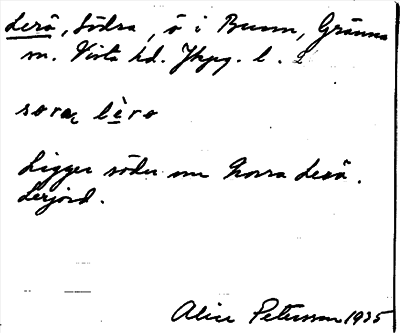 Lerö, Södra, ö i Bunn, Gränna
sn. Vista hd. Jkpg. l.
söra lèrø
Ligger söder om Norra Lerö.
Lerjord.
Alice Petersson 1935